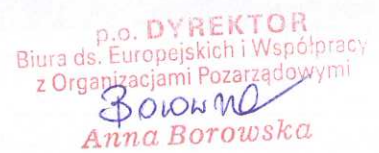 p.o. DYREKTOR
Biura ds. Europejskich i Współpracy
z Organizacjami Pozarządowymi
Anna Borowska